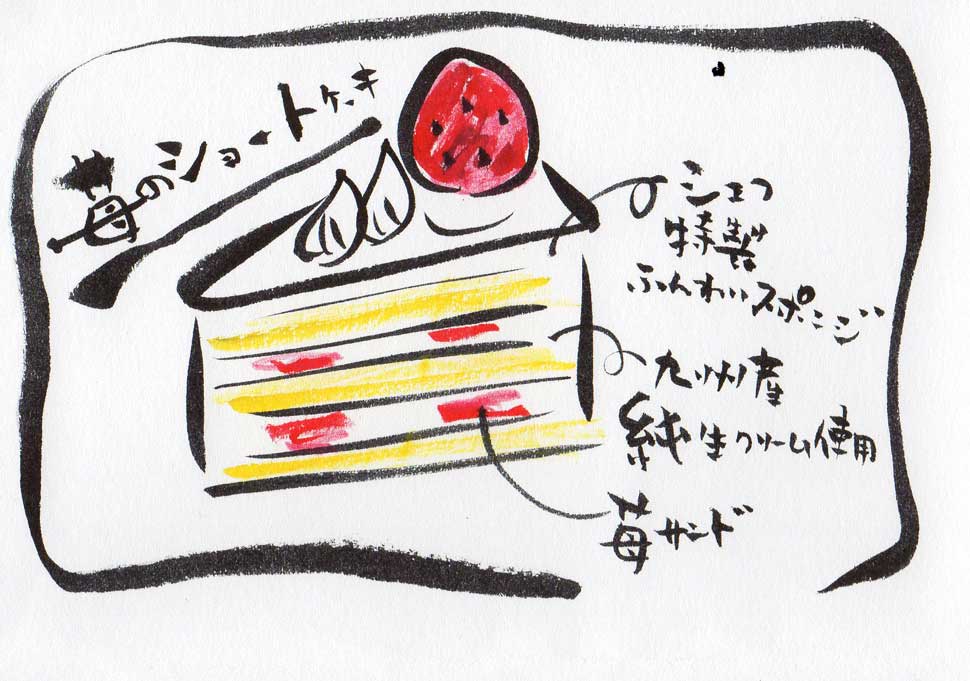 苺のショートケーキ
シェフ
特製
ふんわりスポンジ
九州産
純生クリーム使用
苺サンド